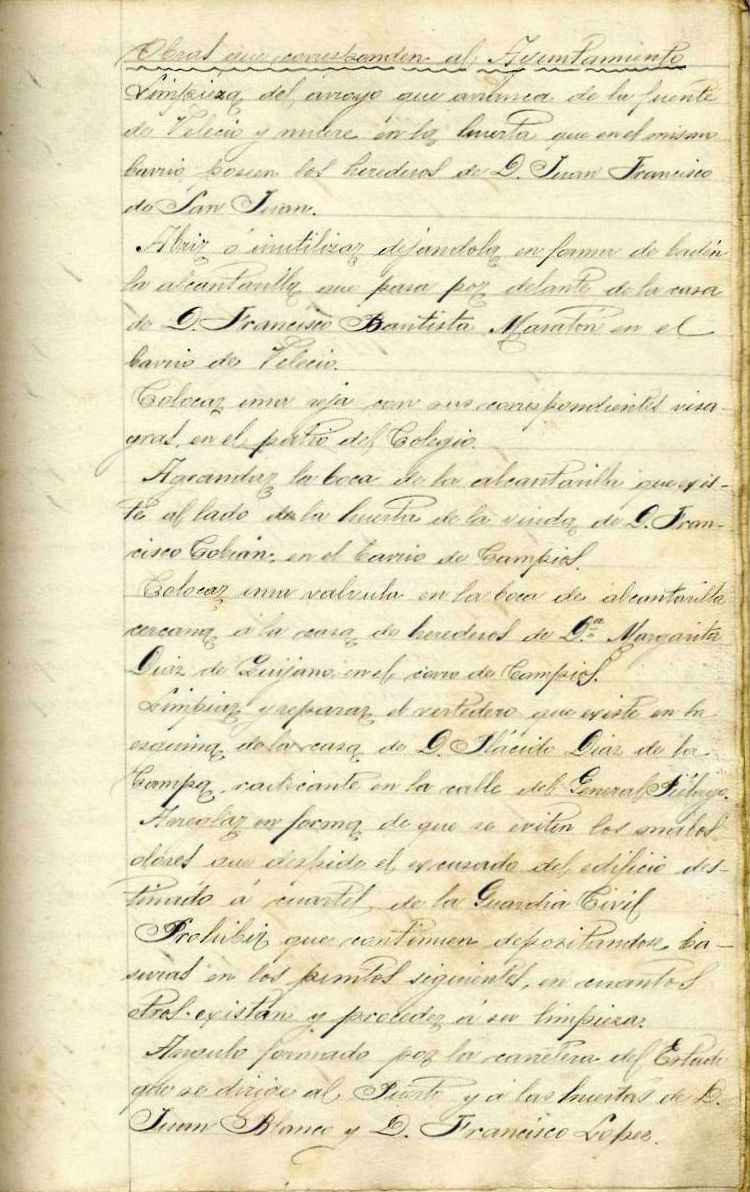 Obras que corresponden al Ayuntamiento
Limpieza del arroyo que arranca de la fuente
de Velecio y muere en la huerta que en el mismo
barrio poseen los herederos de D. Juan Francisco
de San Juan.
Abrir ó inutilizar dejandola en forma de badén
la alcantarilla que pasa por delante de la casa
de D. Francisco Bautista Maratón en el
barrio de Velecio.
Colocar una reja con sus correspondientes visa-
gras, en el patio del Colegio.
Agrandar la boca de la alcantarilla que exis-
te al lado de la huerta de la viuda de D. Fran-
cisco Cobián, en el barrio de Campios.
Colocar una valvula en la boca de alcantarilla
cercana á la casa de herederos de D.ª Margarita
Diaz de Quijano en el corro de Campios.
Limpiar y reparar el vertedero que existe en la
esquina de la casa de D. Plácido Diaz de la
Campa, radicante en la calle del General Piélago.
Arreglar en forma de que se eviten los malos
olores que despide el excusado del edificio des-
tinado á cuartel de la Guardia Civil
Prohibir que continuen depositandose ba-
suras en los puntos siguientes, en cuantos
otros existan y proceder á su limpieza.
Angulo formado por la carretera del Estado
que se dirige al Puerto y á las huertas de D.
Juan Blanco y D. Francisco Lopez.